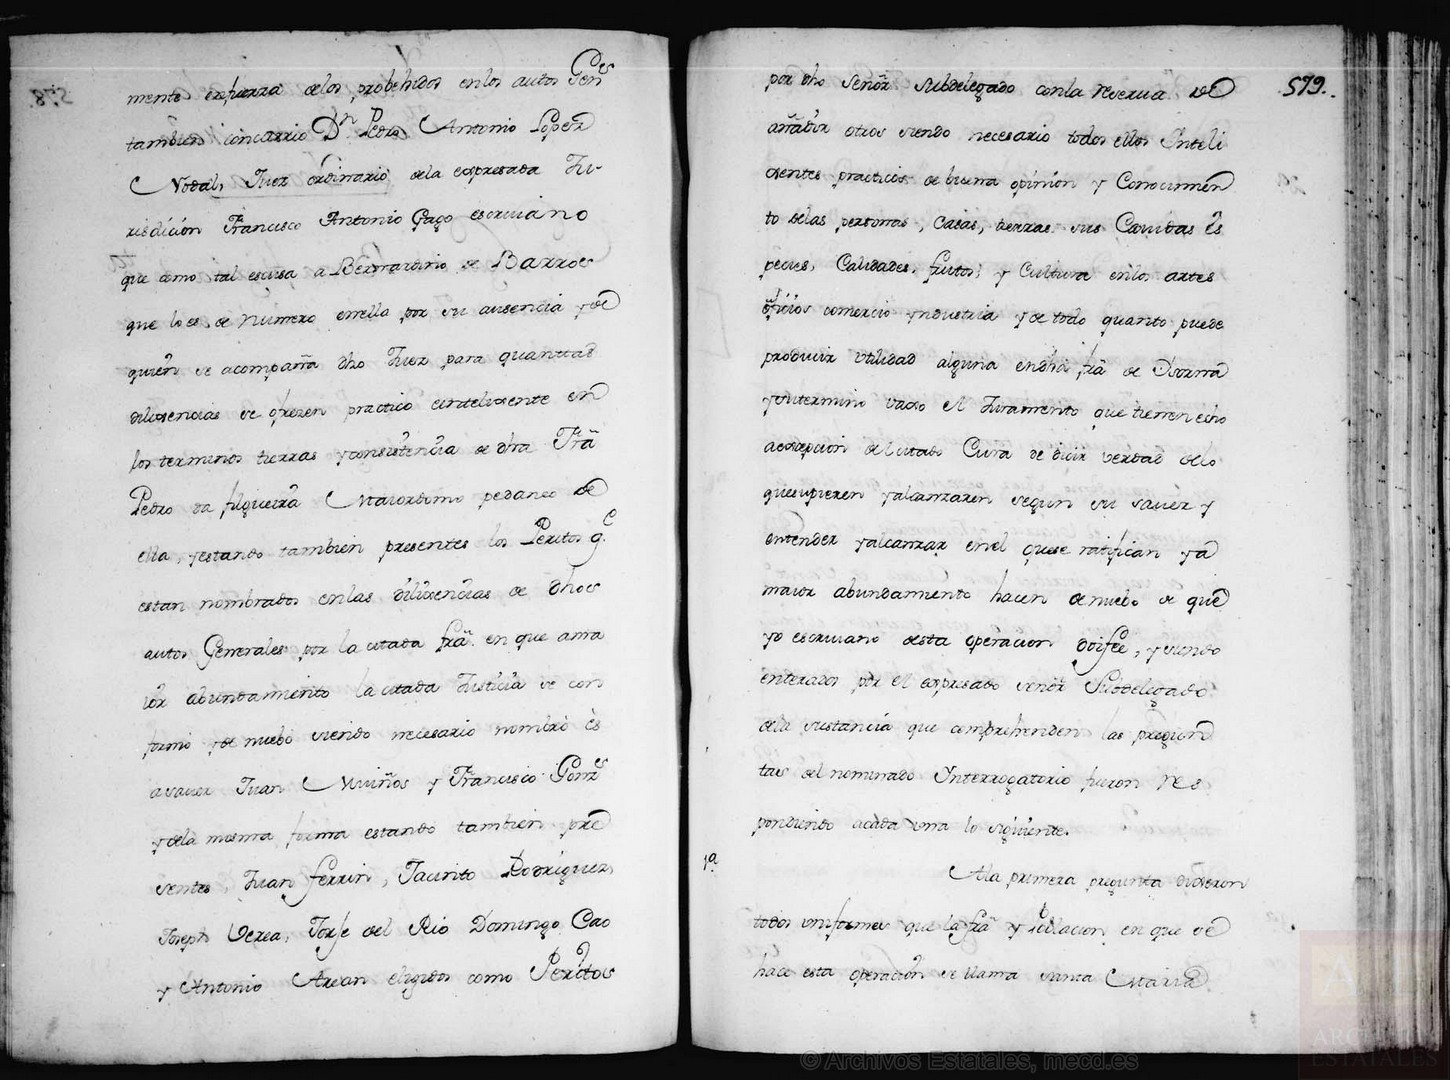 mente enfuerza delos probehidos enlos autos Gen.s
tambien concurrio Dn Pedro Antonio Lopez
Nodal, Juez ordinario dela expresada Ju-
risdición Francisco Antonio Gago escriuano
que como tal escusa a Bernardino de Barros
que lo es de número enella por su ausencia y de
quien se acompaña dho Juez para quanttas
dilixencias se ofrezen practico e intelixente en
los terminos tierras y consistencia de dha Frâ
Pedro da filgueira Maiordomo pedaneo de
ella, y estando tambien presentes los Peritos q.e
estan nombrados enlas dilixencias de dhos
autos Generales por la citada frâ. en que a ma
ior abundamiento la citada Justicia se con
formó y de nuebo siendo necesario nombró ês
a sauer Juan Muiños y Francisco Gonz.s
y dela mesma forma estando tambien pre
sentes, Juan ferrin, Jacinto Rodriguez,
Joseph Verea, Jorje del Rio Domingo Cao
y Antonio Arean elegidos como Peritos
579.
por dho Señor Subdelegado conla reserua de
añadir otros siendo necesario todos ellos Inteli
xentes practicos de buena opinion y Conocimien
to delas personas, Casas, tierras sus Cavidas és
pecies, Calidades, frutos, y Cultura enlos artes
oficios comercio yndustria y de todo quanto puede
producir vtilidad alguna endha frâ de
y su termino vaxo el Juramento que tienen echo
a excepcion del citado Cura de dicir verdad delo
que supieren y alcanzaren segun su sauer y
entender y alcanzar en el que se ratifican y a
maior abundamiento hacen de nuebo de que
yo escriuano desta operacion doi fee, y siendo
enterados por el expresado señor Subdelegado
dela sustancia que comprehenden las pregun
tas del nominado Interrogatorio fueron res
pondiendo acada vna lo siguiente.
1ª.
Ala primera pregunta dixeron
todos vniformes que la frâ y Poblacion en que se
hace esta operación se llama santa Maria
© Archivos Estatales, mecd.es
ARCHIVOS
ESTATALES